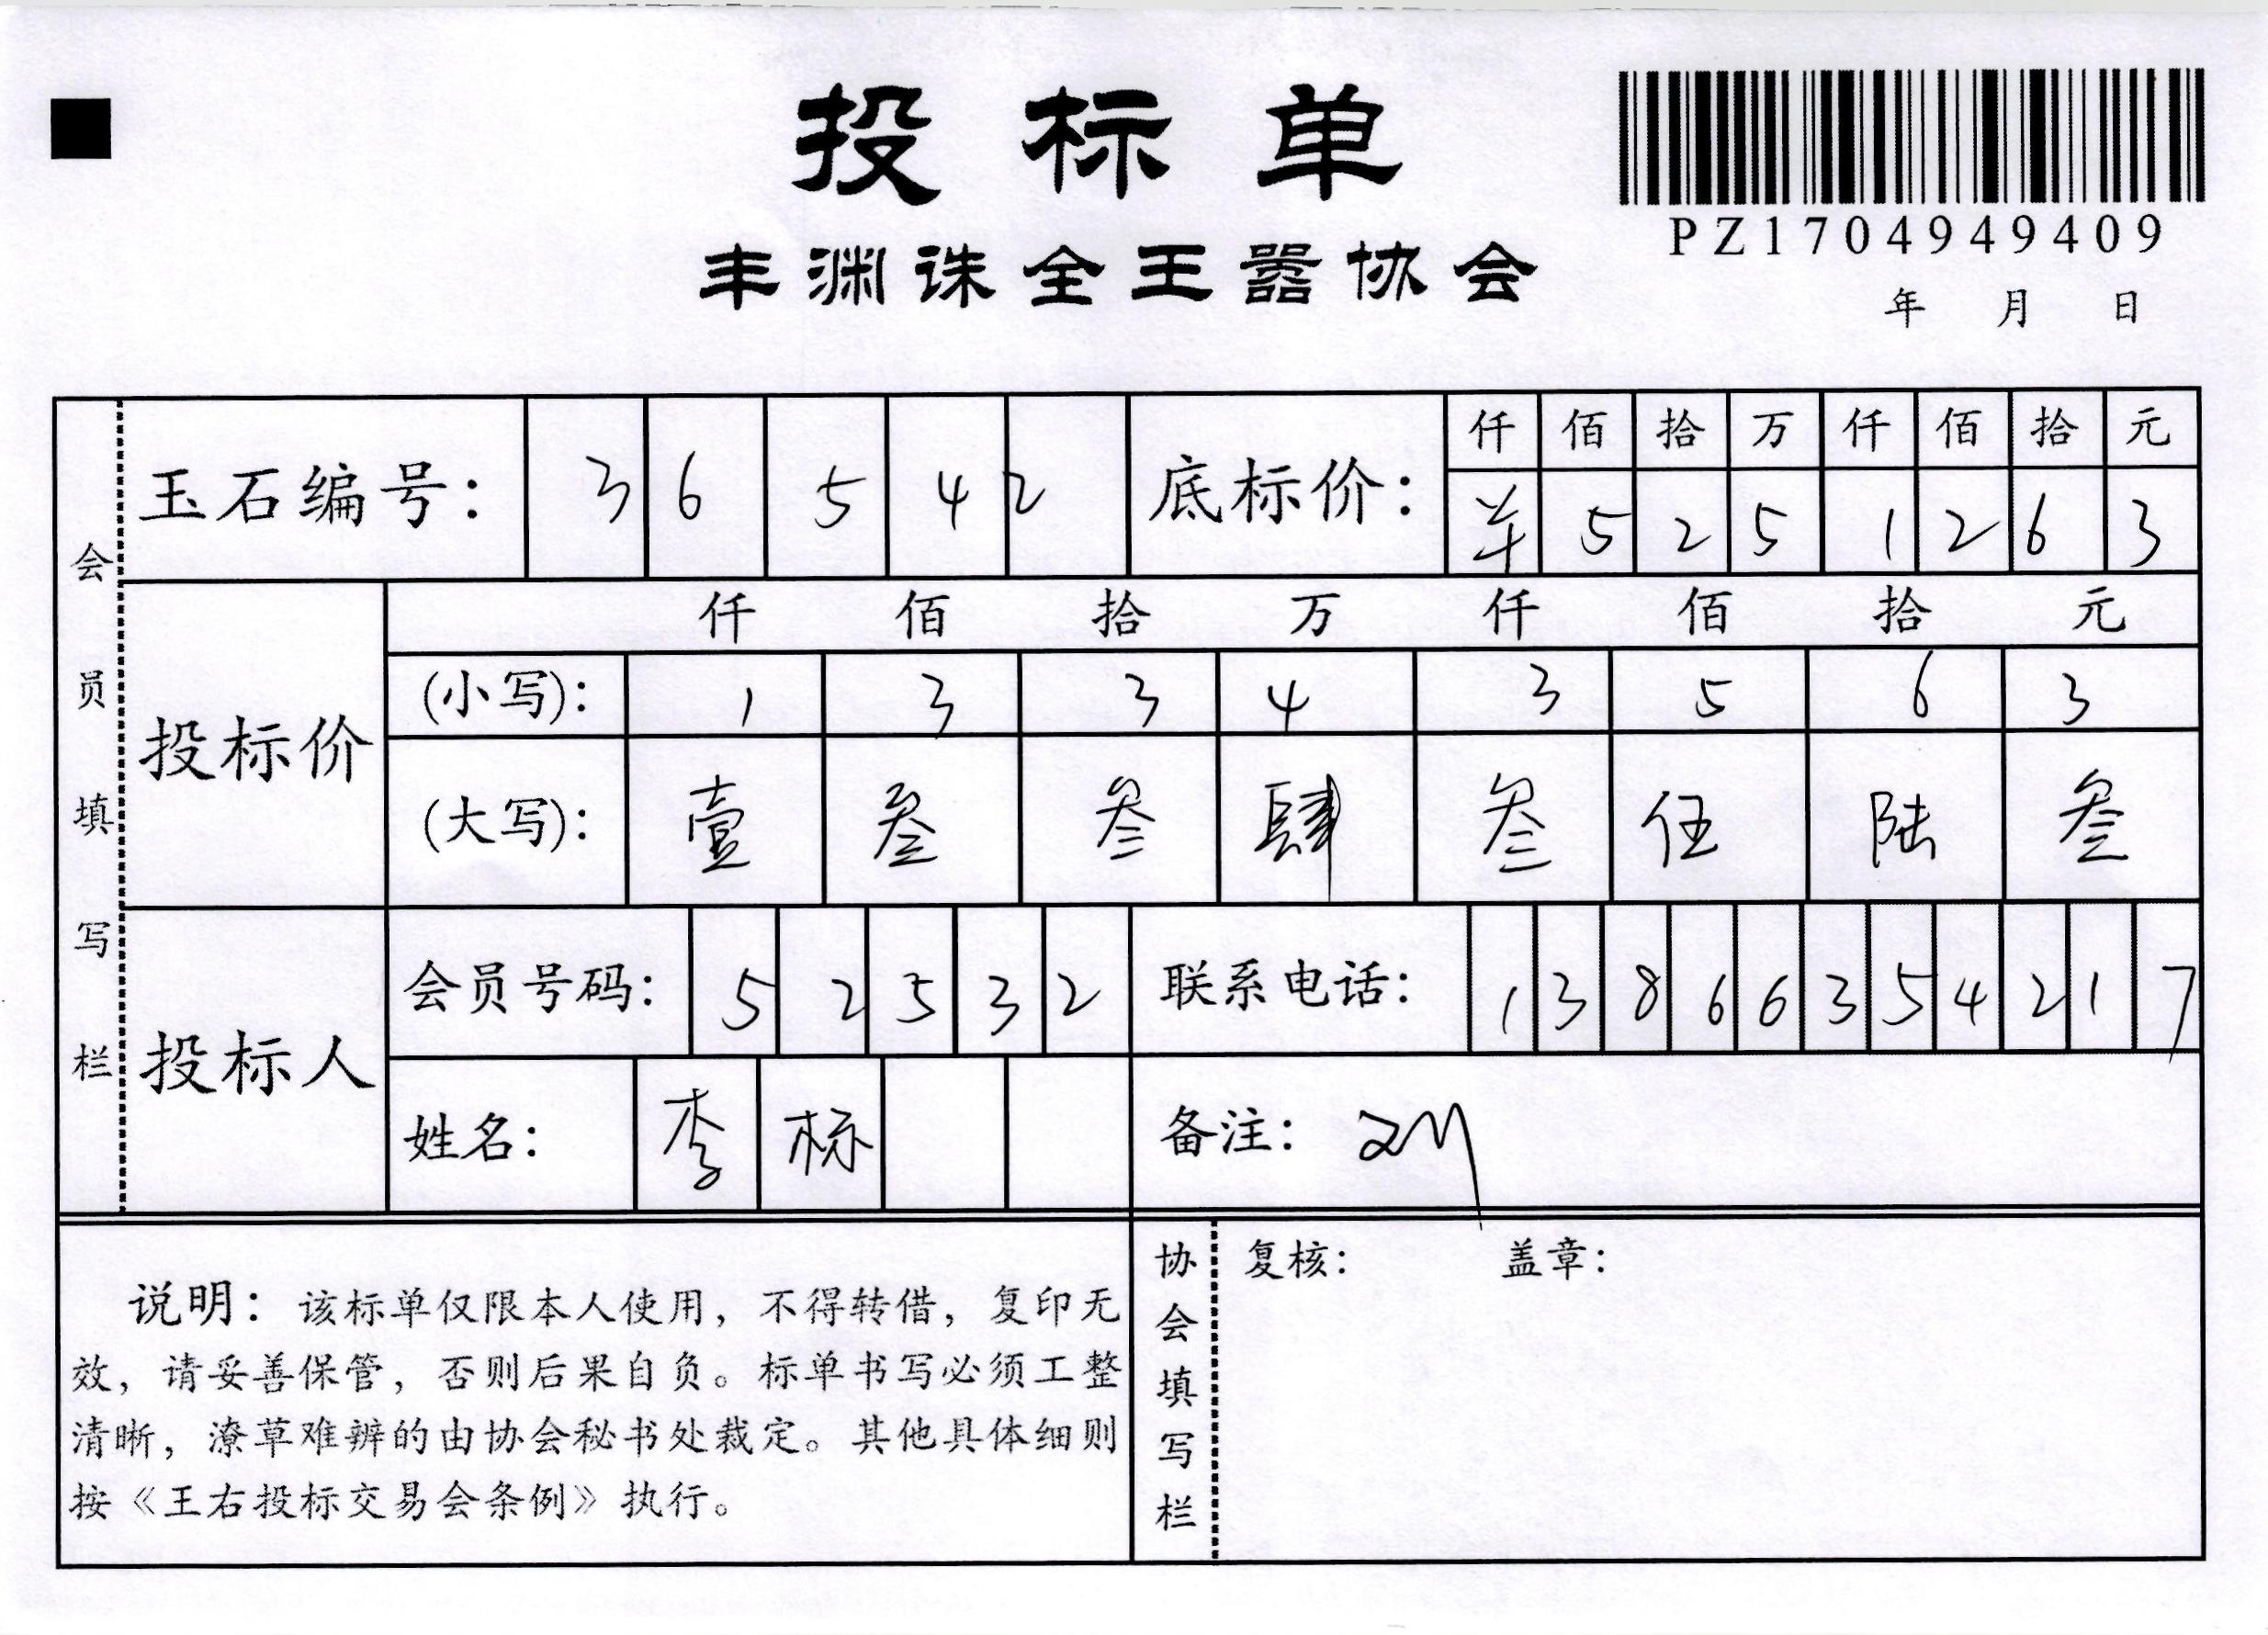 投标单
PZ1704949409
丰渊诛全王嚣协会
年 月 日
会员填写栏
玉石编号： 3 6 5 4 2
底标价：
仟 佰 拾 万 仟 佰 拾 元
5 2 5 1 2 6 3
投标价
仟 佰 拾 万 仟 佰 拾 元
(小写)： 1 3 3 4 3 5 6 3
(大写)： 壹 叁 叁 肆 叁 伍 陆 叁
投标人
会员号码： 5 2 5 3 2
联系电话： 1 3 8 6 6 3 5 4 2 1 7
姓名： 李 标
备注：
说明：该标单仅限本人使用，不得转借，复印无
效，请妥善保管，否则后果自负。标单书写必须工整
清晰，潦草难辨的由协会秘书处裁定。其他具体细则
按《王右投标交易会条例》执行。
协会填写栏
复核： 盖章：